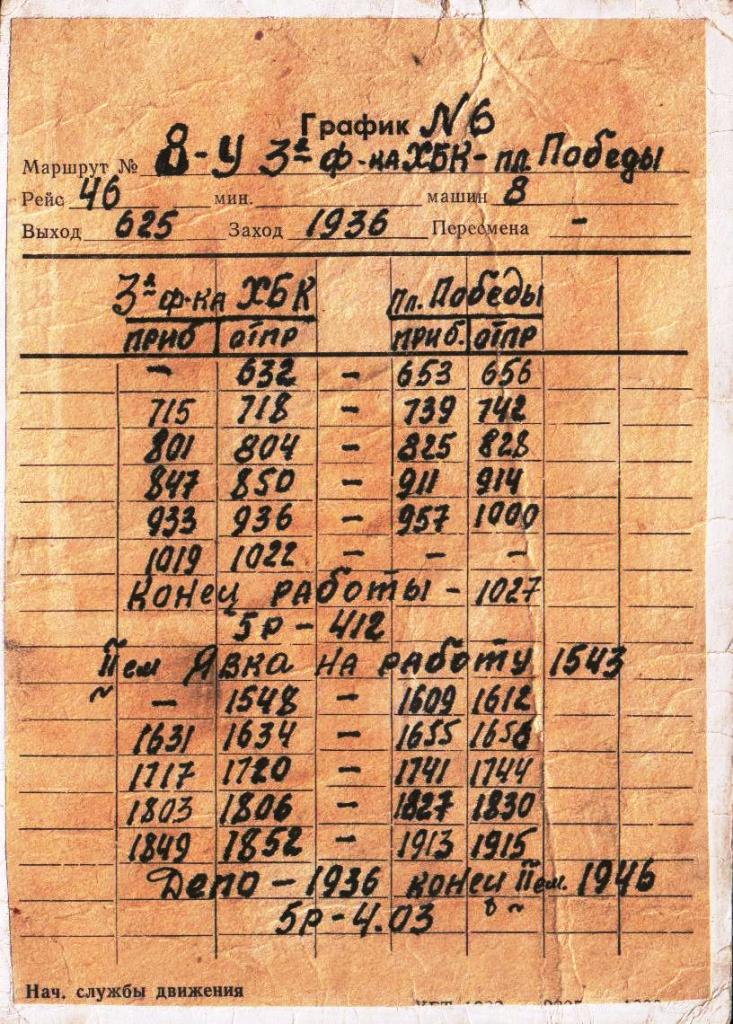 График N 6
Маршрут № 8-у 3ª ф-ка ХБК - пл. Победы
Рейс 46 мин. машин 8
Выход 625 Заход 1936 Пересмена -
3ª ф-ка ХБК пл. Победы
приб отпр приб. отпр
- 632 - 653 656
715 718 - 739 742
801 804 - 825 828
847 850 - 911 914
933 936 - 957 1000
1019 1022 - - -
Конец работы - 1027
5р - 412
IIсм Явка на работу 1543
- 1548 - 1609 1612
1631 1634 - 1655 1658
1717 1720 - 1741 1744
1803 1806 - 1827 1830
1849 1852 - 1913 1915
Депо - 1936 конец IIсм. 1946
5р - 4.03
Нач. службы движения